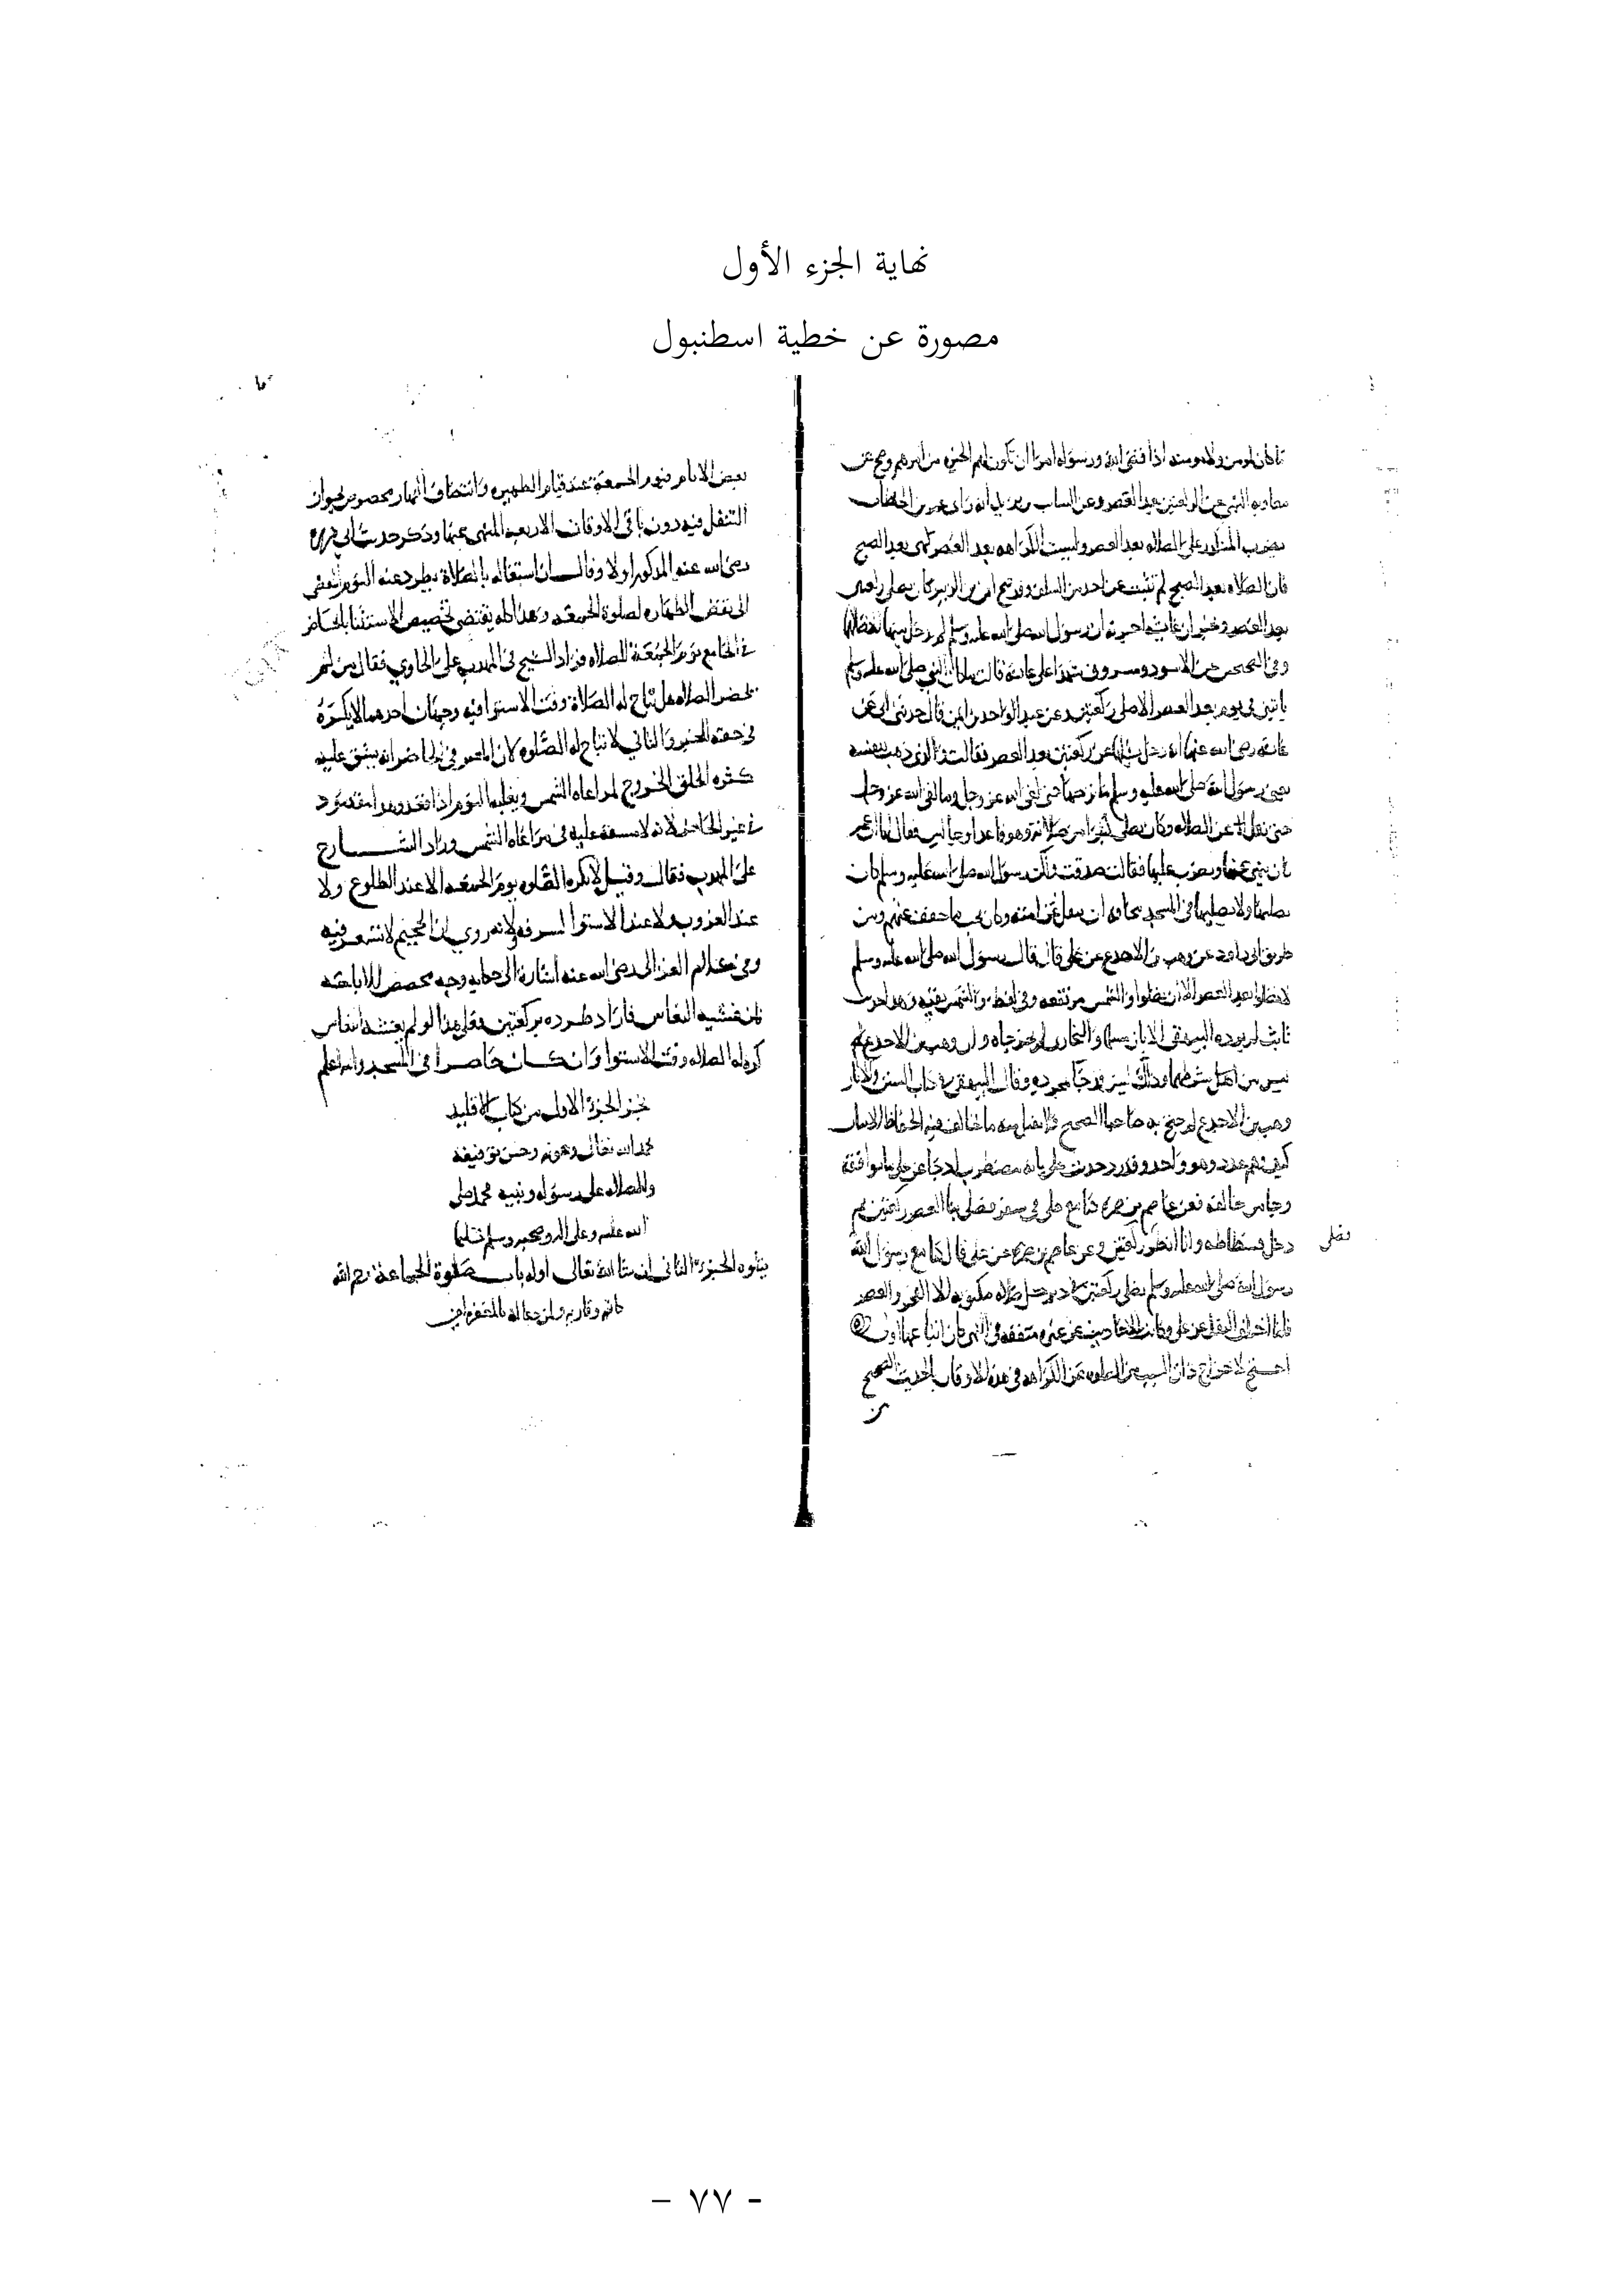 نهاية الجزء الأول
مصورة عن خطية اسطنبول
كان لمومن ولا مومنه اذا قضى الله ورسوله امرا ان تكون لهم الخيره من امرهم وصح عن
معاويه النهي عن الركعتين بعد العصر وعن الساب بن يزيد انه راى عمر بن الخطاب
يضرب المنكدر على الصلاه بعد العصر وليست الكراهه بعد العصر كهى بعد الصبح
فان الصلاه بعد الصبح لم تثبت عن احد من السلف وقد صح ابن الزبير كان يصلي ركعتين
بعد العصر ويخبر ان عايشه اخبرته ان رسول الله صلى الله عليه وسلم لم يدخل بيتها الا صلاها
وفي الصحيحين عن الاسود ومسروق شهدا على عايشة قالت ما كان النبي صلى الله عليه وسلم
ياتيني في يوم بعد العصر الا صلى ركعتين وعن عبد الواحد بن ايمن قال حدثني ابي عن
عايشه رضي الله عنها انه دخل عليها عن ركعتين بعد العصر فقالت والذي ذهب بنفسه
يعني رسول الله صلى الله عليه وسلم ما تركهما حتى لقي الله عز وجل وما لقي الله عز وجل
حتى ثقل عن الصلاه وكان يصلي كثيرا من صلاته وهو قاعد او جالس فقال لها ان عمر
كان ينهى عنهما ويضرب عليهما فقالت صدقت ولكن رسول الله صلى الله عليه وسلم كان
يصليهما ولا يصليهما في المسجد مخافه ان يثقل على امته وكان يحب ما خفف عنهم ومن
طريق ابي داود عن وهب بن الاجدع عن علي قال قال رسول الله صلى الله عليه وسلم
لا تصلوا بعد العصر الا ان تصلوا والشمس مرتفعه وفي لفظ والشمس نقيه وهذا حديث
ثابت البيهقي الا ان مسلما والبخاري لم يخرجاه وان وهب بن الاجدع
ليس من اهل شرطهما وذلك وقال البيهقي في كتاب السنن والاثار
وهب بن الاجدع لم يحتج به صاحبا الصحيح فلا يقبل منه ما خالف فيه الحفاظ الاثبات
كيف وهم عدد وهو واحد وقد رد حديث علي بانه مضطرب اذ جا عن علي ما يوافقه
وجا ما يخالفه فعن عاصم بن ضمره كنا مع علي في سفر فصلى بنا العصر ركعتين ثم
دخل فسطاطه وانا انظر ركعتين وعن عاصم بن ضمره عن علي قال كنا مع رسول الله
فصلى
رسول الله صلى الله عليه وسلم يصلي ركعتين في دبر كل صلاه مكتوبه الا الفجر والعصر
فلما اختلف النقل عن علي وكانت الاحاديث عن غيره متفقه في النهي كان اتباعها اولى
احتج لاخراج ذات السبب من الصلوه عن الكراهه في هذه الاوقات بالحديث الصحيح
من
بعض الايام فيوم الجمعة عند قيام الظهيره وانتصاف النهار مخصوص بجواز
التنفل فيه دون باقي الاوقات الاربعه المنهي عنها وذكر حديث ابي هريره
رضي الله عنه المذكور اولا وقال ان اشتغاله بالصلاة يطرد عنه النوم المفضي
الى نقض الطهاره لصلوة الجمعه وهذا كله يقتضي تخصيص الاستثنا بالحاضر
في الجامع يوم الجمعة للصلاه وزاد الشيخ في المهذب على الحاوي فقال من لم
يحضر الصلاه هل تباح له الصلاة وقت الاستوا فيه وجهان احدهما لا يكره
في حقه للخبر والثاني لا تباح له الصلوه لان المعنى في اباحتها انه يشق عليه
كثره الخلق الخروج لمراعاه الشمس ويغلبه النوم اذا قعد وهذا مفقود
في غير الحاضر لانه لا مشقه عليه في مراعاه الشمس وزاد الشارح
على المهذب فقال وقيل لا تكره الصلوه يوم الجمعه الا عند الطلوع ولا
عند الغروب ولا عند الاستوا لشرفه ولانه روي ان الجحيم لا تسعر فيه
وفي كلام الغزالي رضي الله عنه اشارة الى حكايه وجه مخصص للاباحه
بمن غشيه النعاس فاراد طرده بركعتين فعلى هذا لو لم يغشه النعاس
كره له الصلاه وقت الاستوا وان كان حاضرا في المسجد والله اعلم
نجز الجزء الاول من كتاب الاقليد
بحمد الله تعالى وعونه وحسن توفيقه
والصلاه على رسوله ونبيه محمد صلى
الله عليه وعلى اله وصحبه وسلم تسليما
يتلوه الجزء الثاني ان شا الله تعالى اوله باب صلوة الجماعة رحم الله
كاتبه وقاريه ولمن دعا له بالمغفره امين
- ٧٧ -